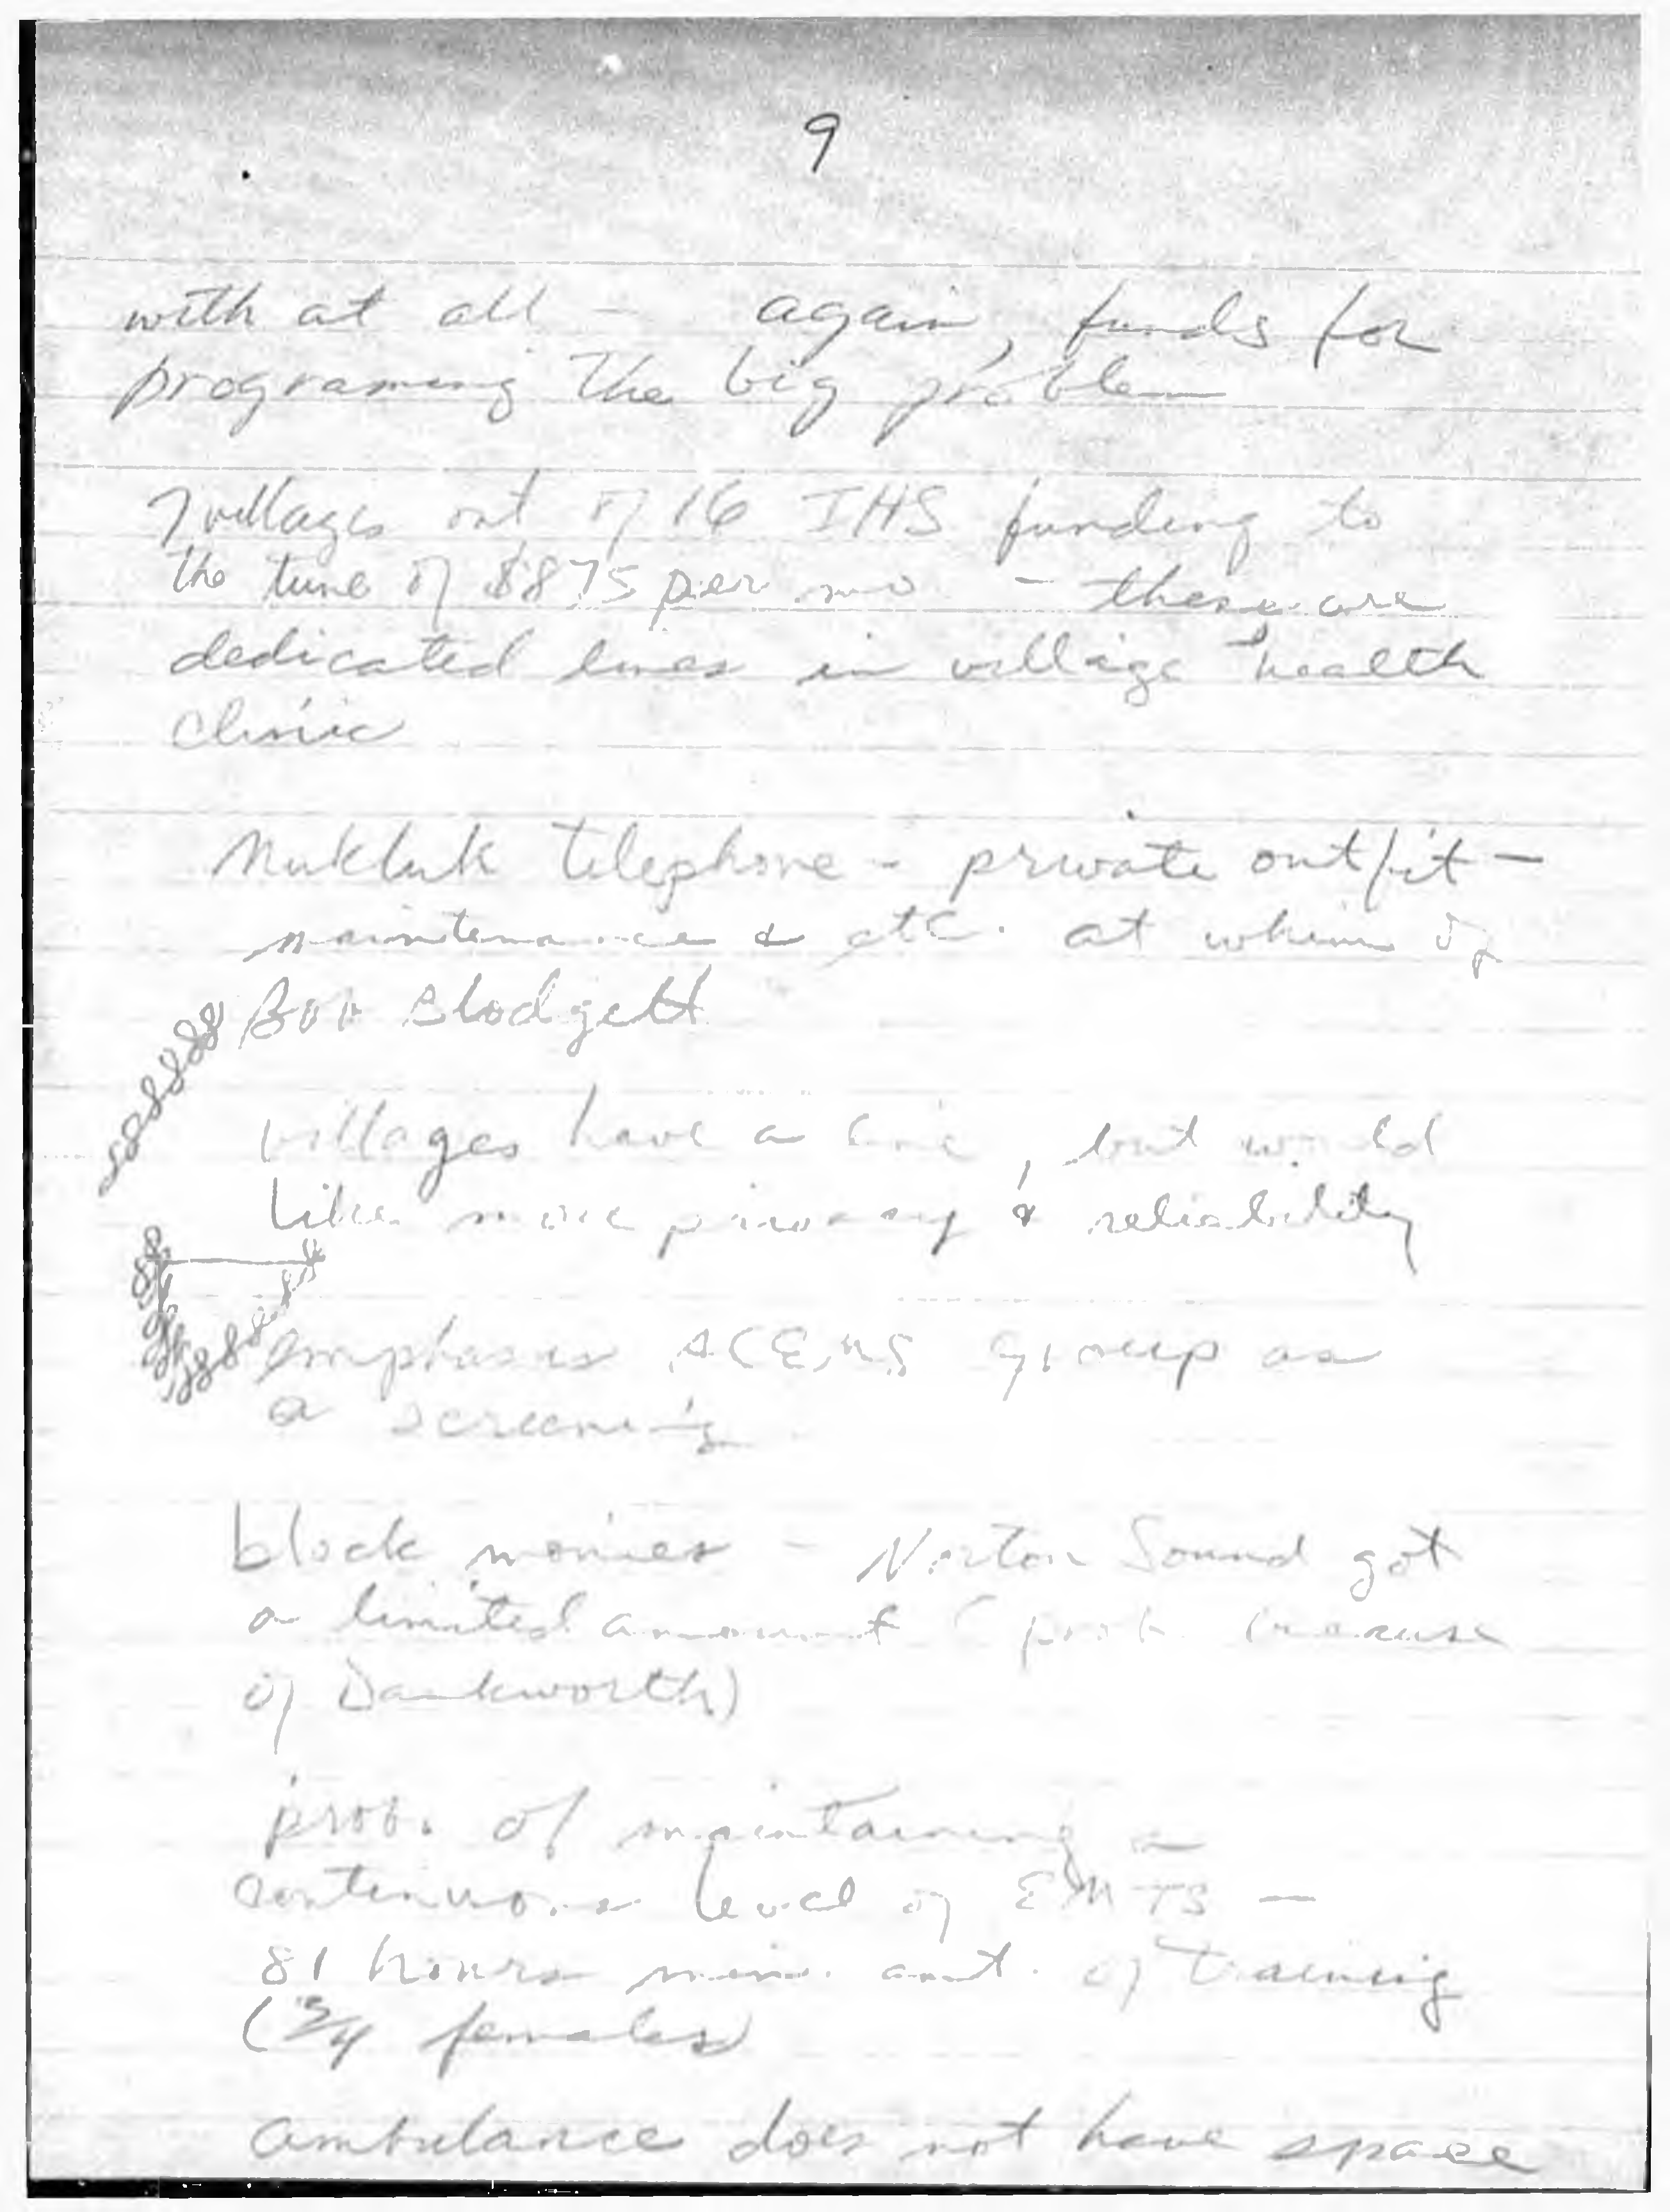 9
with at all - again, funds for
programing the big problem
7 villages out of 16 IHS funding to
the tune of $875 per mo - these are
dedicated lines in village health
clinic
Mukluk telephone - private outfit -
maintenance & etc. at whim of
Bob Blodgett
villages have a line, but would
like more privacy & reliability
emphasis ACEMS group as
a screening
block monies - Norton Sound got
a limited amount (prob because
of Dankworth)
prob. of maintaining a
continuous level of EMTS -
81 hours min. amt. of training
(3/4 females)
ambulance does not have space